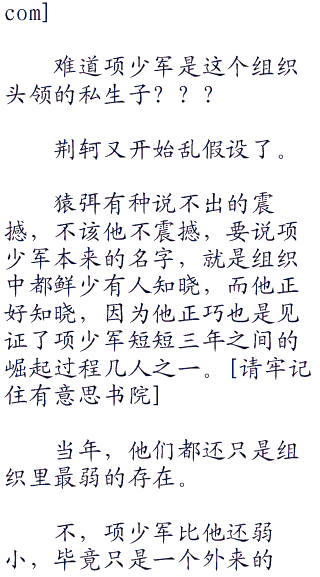 com]
难道项少军是这个组织
头领的私生子？？？
荆轲又开始乱假设了。
猿弭有种说不出的震
撼，不该他不震撼，要说项
少军本来的名字，就是组织
中都鲜少有人知晓，而他正
好知晓，因为他正巧也是见
证了项少军短短三年之间的
崛起过程几人之一。[请牢记
住有意思书院]
当年，他们都还只是组
织里最弱的存在。
不，项少军比他还弱
小，毕竟只是一个外来的